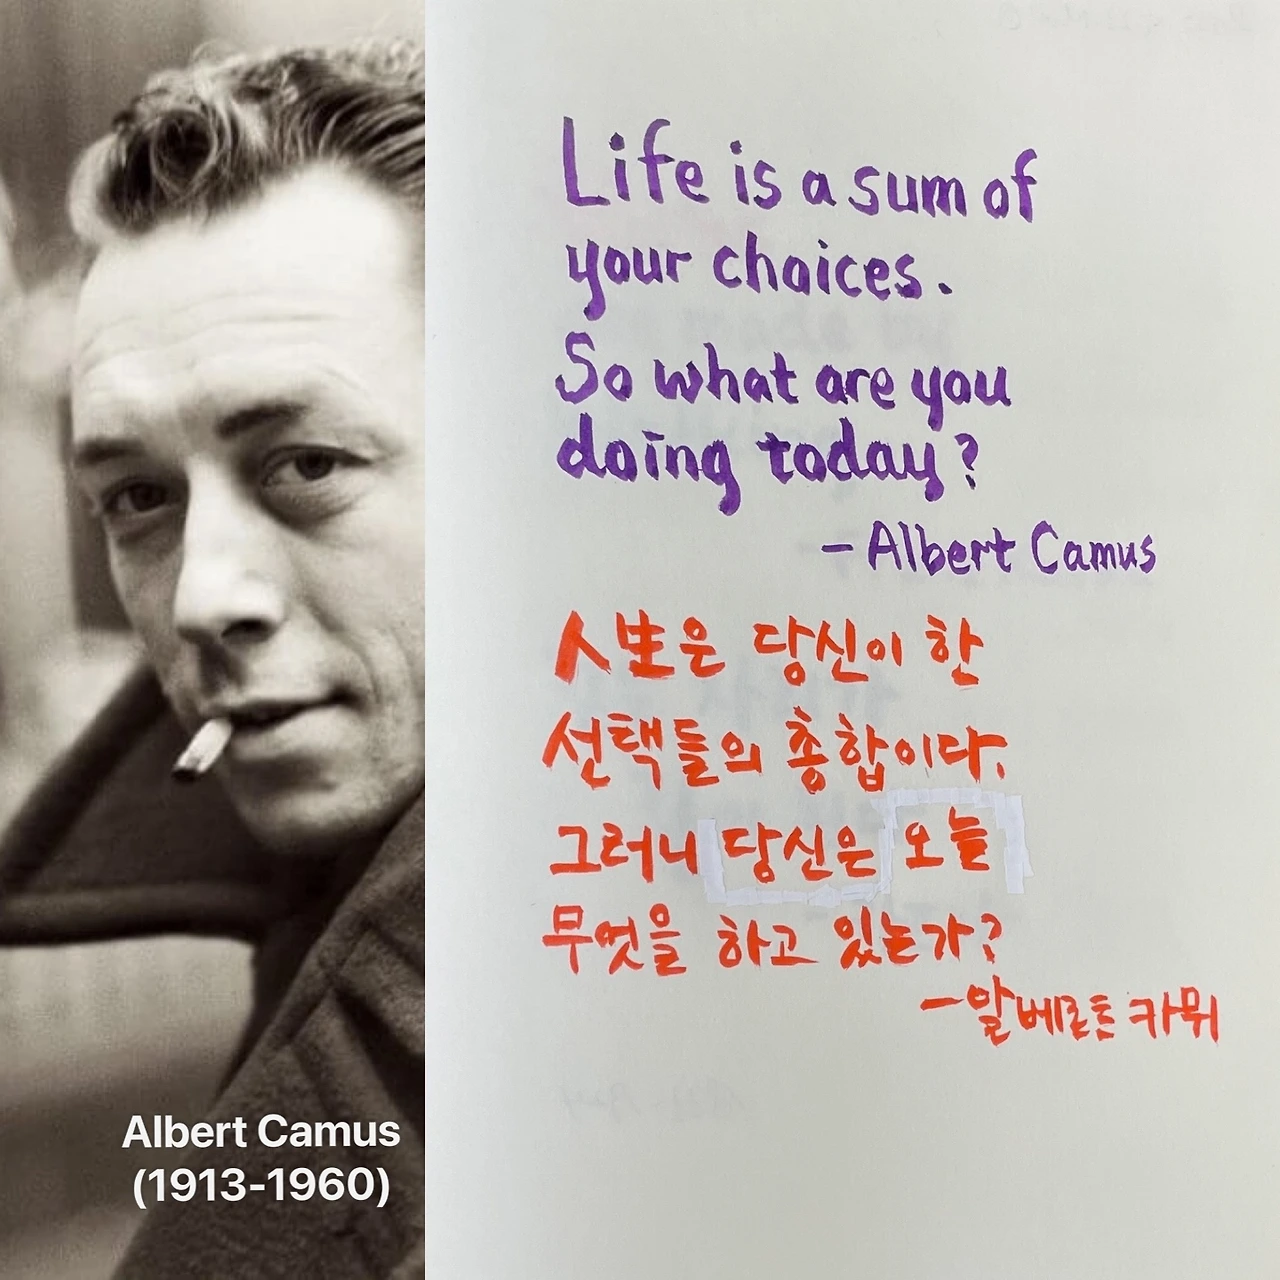 Life is a sum of
your choices.
So what are you
doing today?
- Albert Camus
人生은 당신이 한
선택들의 총합이다.
그러니 당신은 오늘
무엇을 하고 있는가?
- 알베르트 카뮈
Albert Camus
(1913-1960)